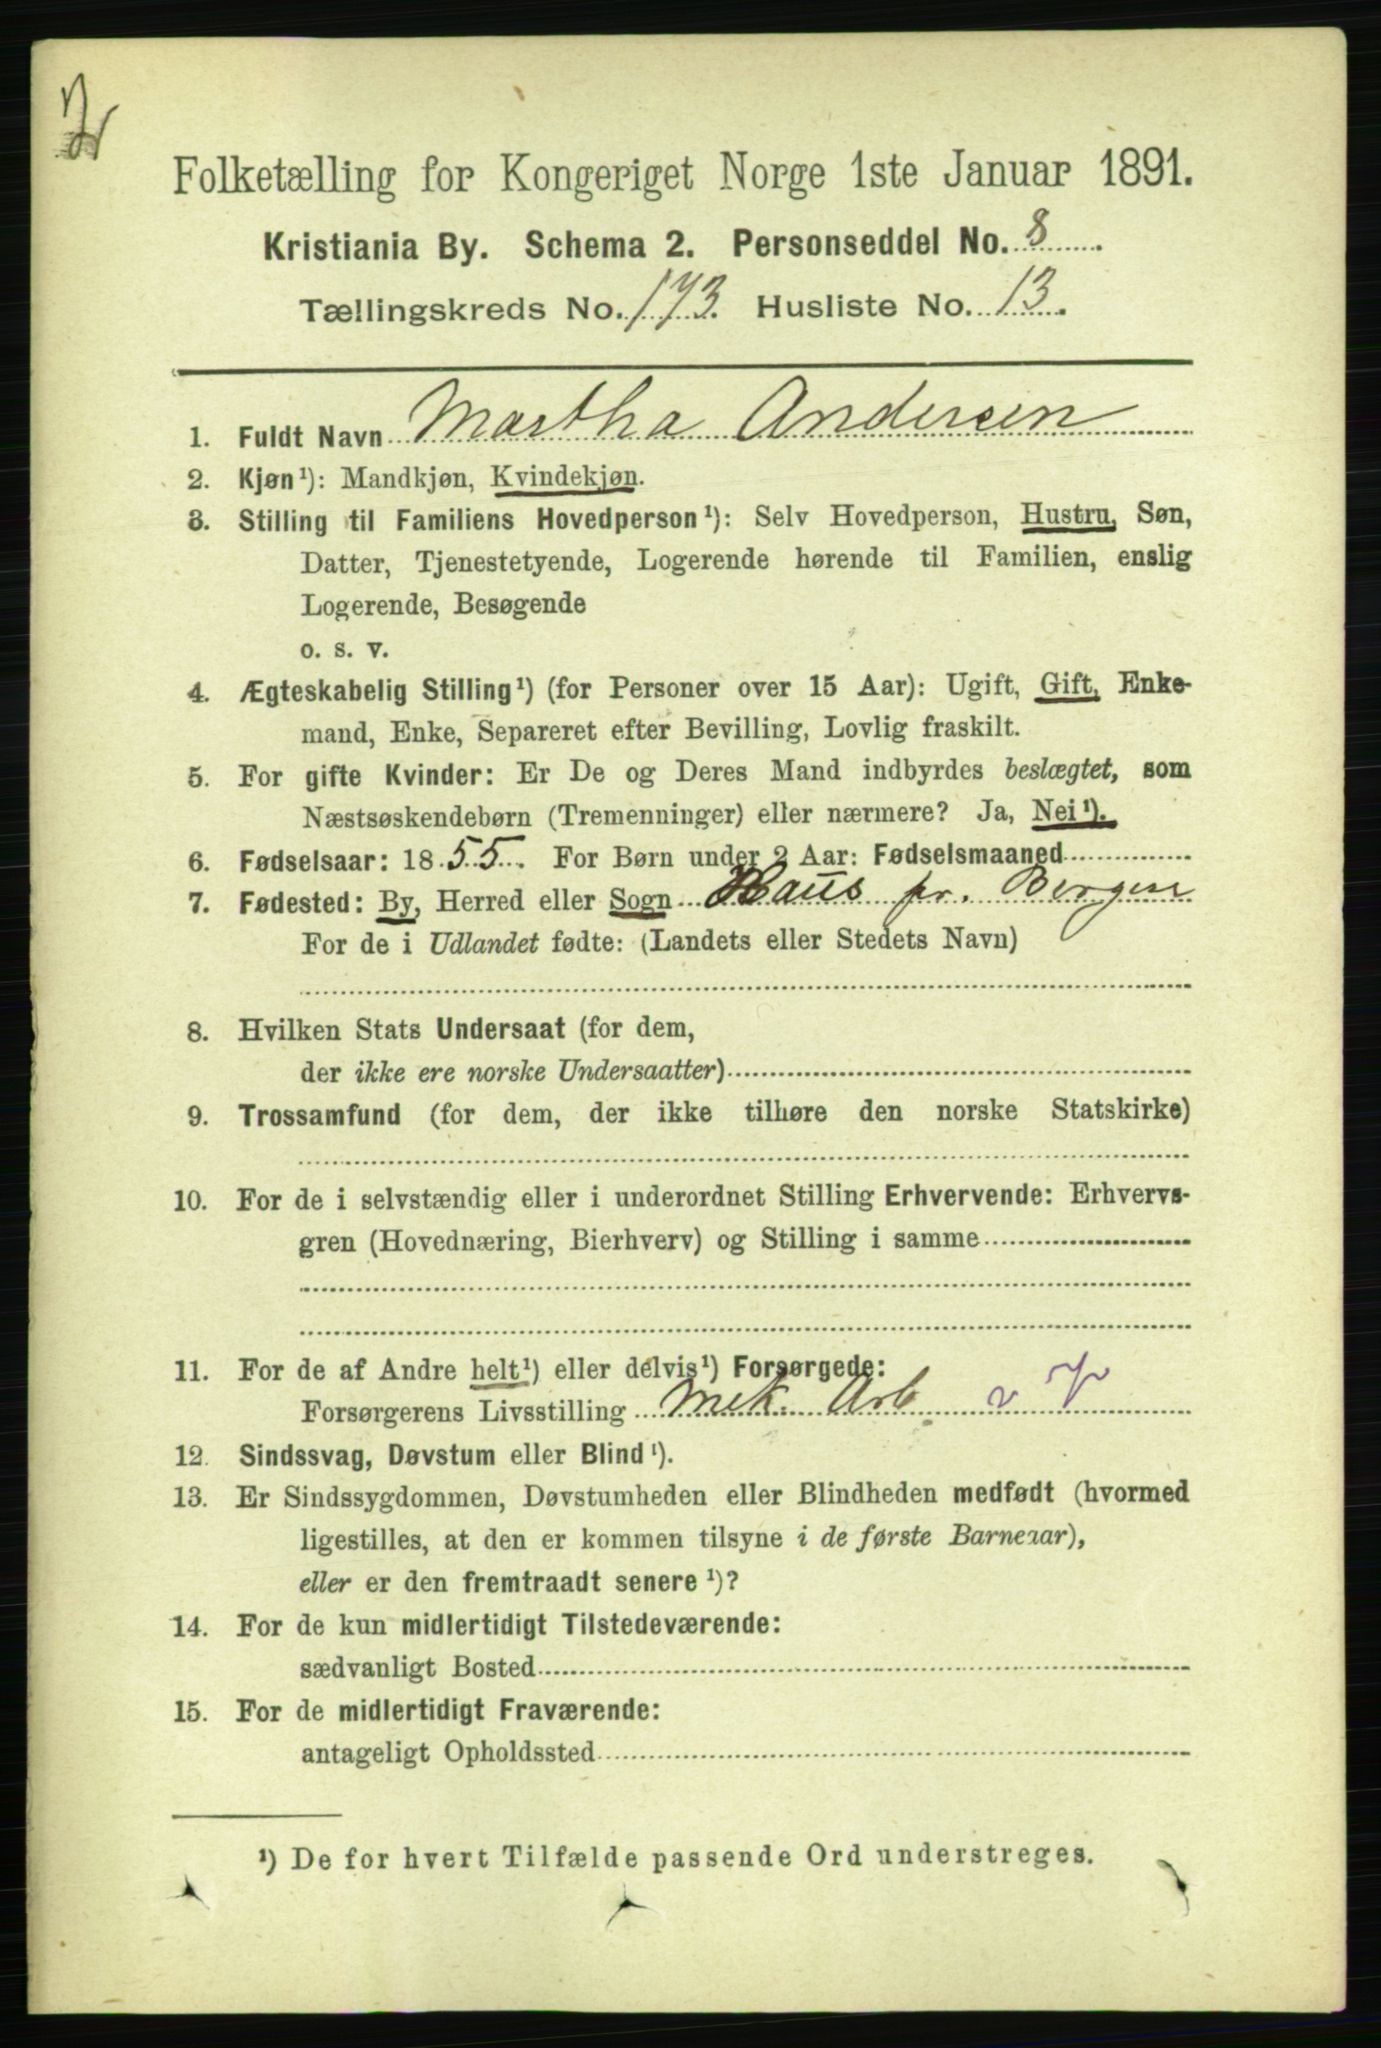 Folketælling for Kongeriget Norge 1ste Januar 1891.
Kristiania By. Schema 2. Personseddel No. 8.
Tællingskreds No. 173. Husliste No. 13.
1. Fuldt Navn Martha Andersen
2. Kjøn¹): Mandkjøn, Kvindekjøn.
3. Stilling til Familiens Hovedperson¹): Selv Hovedperson, Hustru, Søn,
Datter, Tjenestetyende, Logerende hørende til Familien, enslig
Logerende, Besøgende
o. s. v.
4. Ægteskabelig Stilling¹) (for Personer over 15 Aar): Ugift, Gift, Enke-
mand, Enke, Separeret efter Bevilling, Lovlig fraskilt.
5. For gifte Kvinder: Er De og Deres Mand indbyrdes beslægtet, som
Næstsøskendebørn (Tremenninger) eller nærmere? Ja, Nei¹).
6. Fødselsaar: 1855. For Børn under 2 Aar: Fødselsmaaned
7. Fødested: By, Herred eller Sogn Haus pr. Bergen
For de i Udlandet fødte: (Landets eller Stedets Navn)
8. Hvilken Stats Undersaat (for dem,
der ikke ere norske Undersaatter)
9. Trossamfund (for dem, der ikke tilhøre den norske Statskirke)
10. For de i selvstændig eller i underordnet Stilling Erhvervende: Erhvervs-
gren (Hovednæring, Bierhverv) og Stilling i samme
11. For de af Andre helt¹) eller delvis¹) Forsørgede:
Forsørgerens Livsstilling Mek. Arb v V
12. Sindssvag, Døvstum eller Blind¹).
13. Er Sindssygdommen, Døvstumheden eller Blindheden medfødt (hvormed
ligestilles, at den er kommen tilsyne i de første Barneaar),
eller er den fremtraadt senere¹)?
14. For de kun midlertidigt Tilstedeværende:
sædvanligt Bosted
15. For de midlertidigt Fraværende:
antageligt Opholdssted
¹) De for hvert Tilfælde passende Ord understreges.